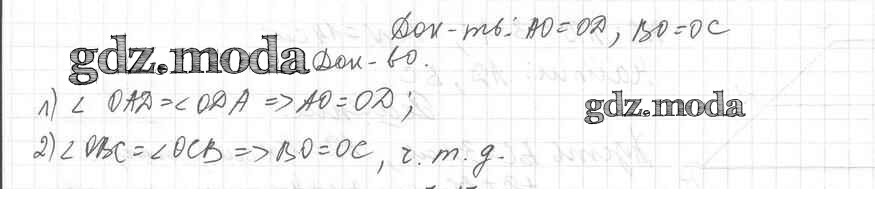 Док-ть: AO=OD, BO=OC
gdz.moda Док-во.
1) ∠ OAD=∠ODA => AO=OD;
gdz.moda
2) ∠OBC=∠OCB => BO=OC, ч. т. д.